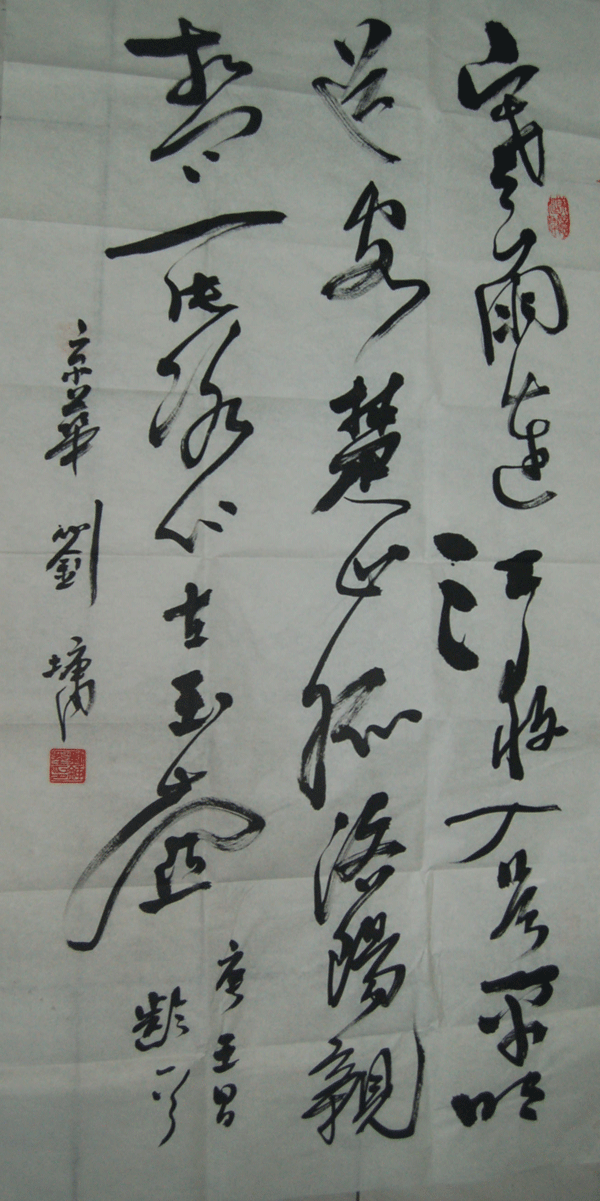 寒雨連江夜入吴平明
送客楚山孤洛陽親
相问一片冰心在玉壺
唐王昌
齡
京華劉墉